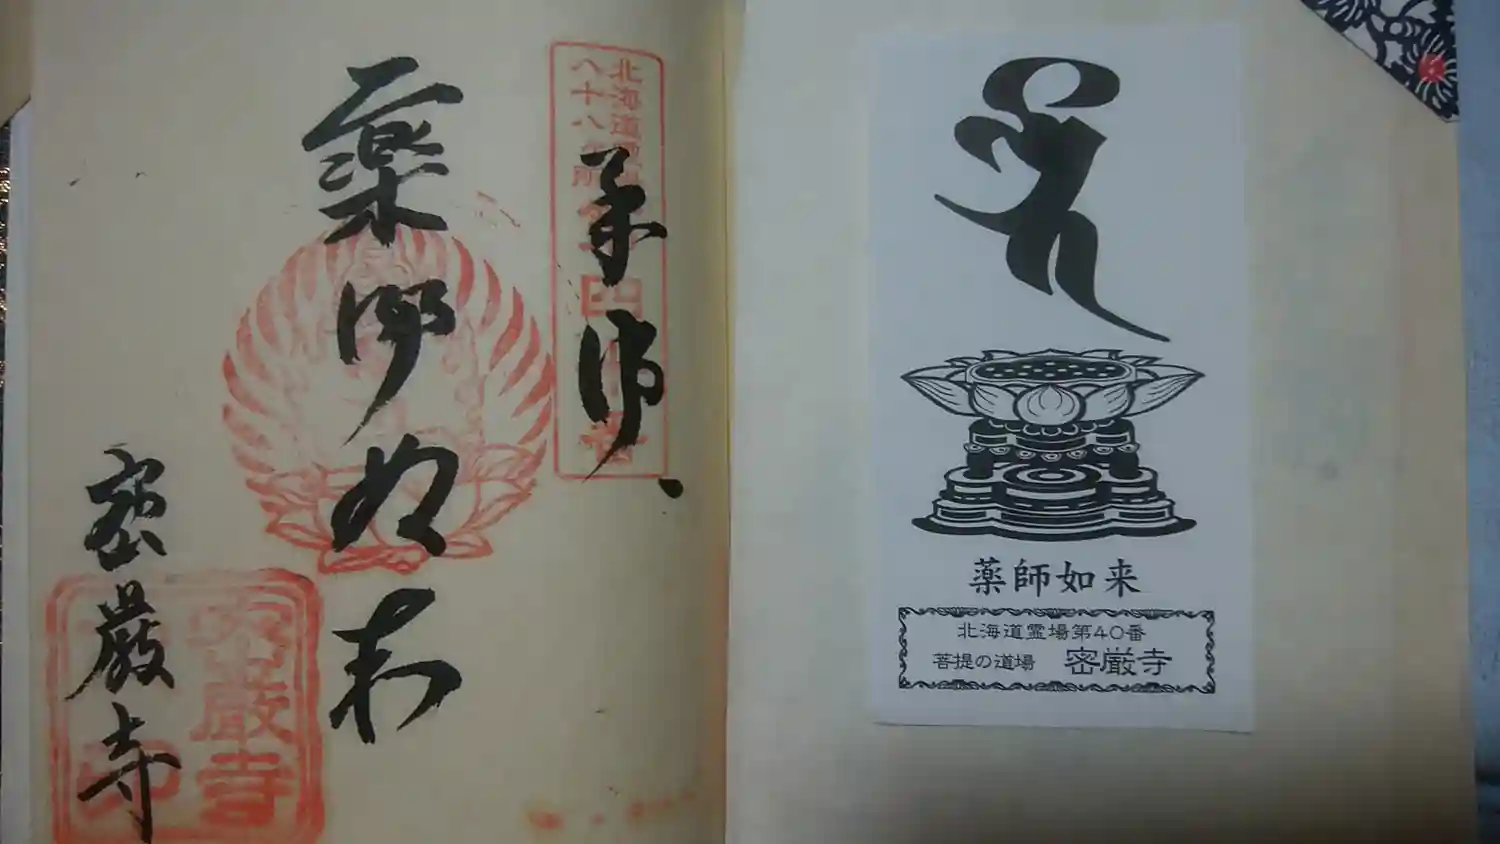 北海道霊場
八十八ヶ所
奉拝
薬師如来
密厳寺
薬師如来
北海道霊場第40番
菩提の道場 密厳寺